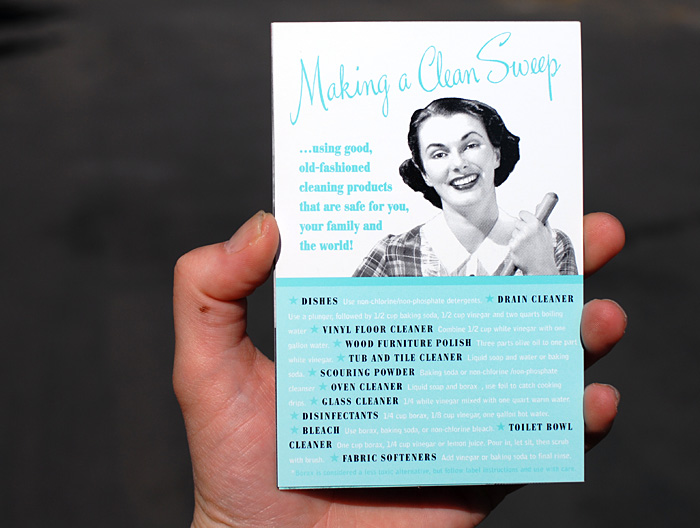 Making a Clean Sweep
...using good,
old-fashioned
cleaning products
that are safe for you,
your family and
the world!
★ DISHES Use non-chlorine/non-phosphate detergents. ★ DRAIN CLEANER
Use a plunger, followed by 1/2 cup baking soda, 1/2 cup vinegar and two quarts boiling
water ★ VINYL FLOOR CLEANER Combine 1/2 cup white vinegar with one
gallon water. ★ WOOD FURNITURE POLISH Three parts olive oil to one part
white vinegar. ★ TUB AND TILE CLEANER Liquid soap and water or baking
soda. ★ SCOURING POWDER Baking soda or non-chlorine /non-phosphate
cleanser ★ OVEN CLEANER Liquid soap and borax , use foil to catch cooking
drips. ★ GLASS CLEANER 1/4 white vinegar mixed with one quart warm water.
★ DISINFECTANTS 1/4 cup borax, 1/8 cup vinegar, one gallon hot water.
★ BLEACH Use borax, baking soda, or non-chlorine bleach ★ TOILET BOWL
CLEANER One cup borax, 1/4 cup vinegar or lemon juice. Pour in, let sit, then scrub
with brush. ★ FABRIC SOFTENERS Add vinegar or baking soda to final rinse.
* Borax is considered a less toxic alternative, but follow label instructions and use with care.